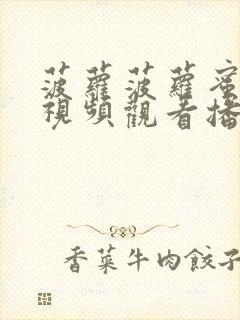 菠蘿菠蘿蜜
視頻觀看播
香菜牛肉餃子